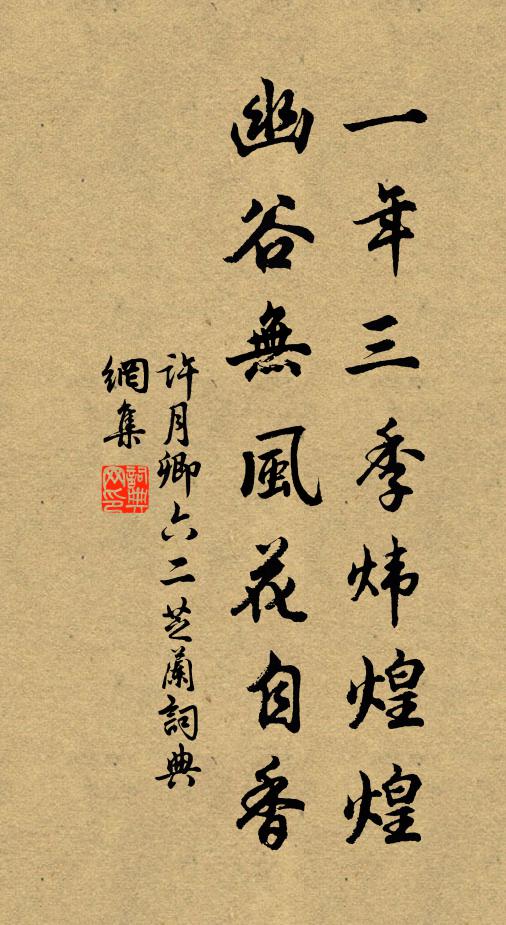 一年三季炜煌煌
幽谷無風花自香
許月卿六二芝蘭詞典
網集
詞典
网印